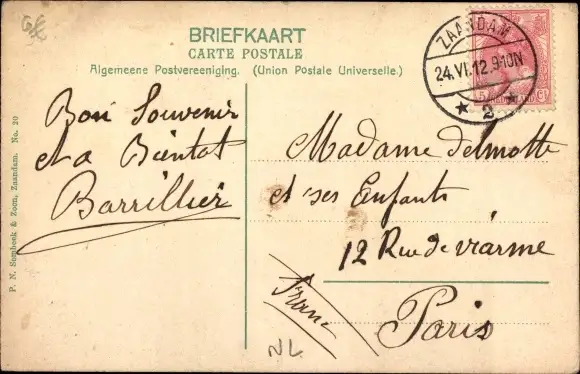 BRIEFKAART
CARTE POSTALE
Algemeene Postvereeniging. (Union Postale Universelle.)
ZAANDAM
24.VI.12.9-10N
2
Bon Souvenir
et a Bientot
Barrillier
Madame delmotte
et ses Enfants
12 Rue de viarme
Paris
France
NL
P. N. Sombeek & Zoon, Zaandam. No. 20